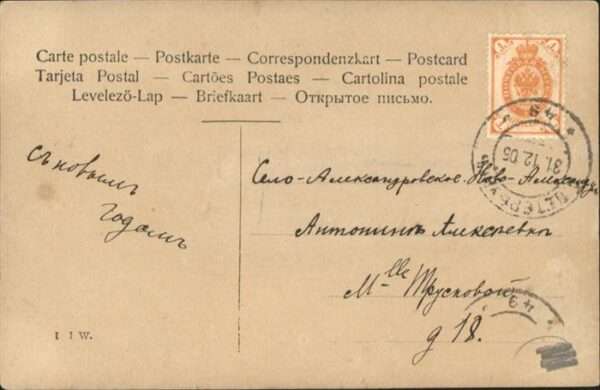 Carte postale — Postkarte — Correspondenzkart — Postcard
Tarjeta Postal — Cartões Postaes — Cartolina postale
Levelező-Lap — Briefkaart — Открытое письмо.
съ новымъ
годомъ
Село-Александровское. Ново-Александр
Антонинѣ Алексѣевнѣ
М-lle Трусковой
д 18.
I I W.
31.12.05
49